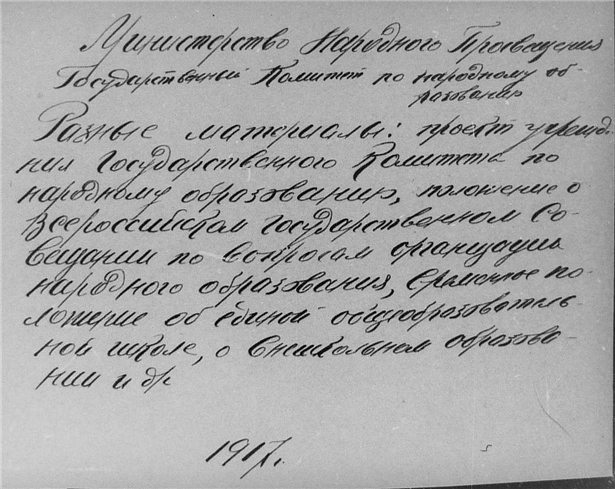 Министерство Народного Просвещения
Государственный Комитет по народному об-
разованию
Разные материалы: проект учрежде-
ния Государственного Комитета по
народному образованию, положение о
Всероссийском государственном Со-
вещании по вопросам организации
народного образования, временное по-
ложение об единой общеобразователь-
ной школе, о внешкольном образова-
нии и др
1917.